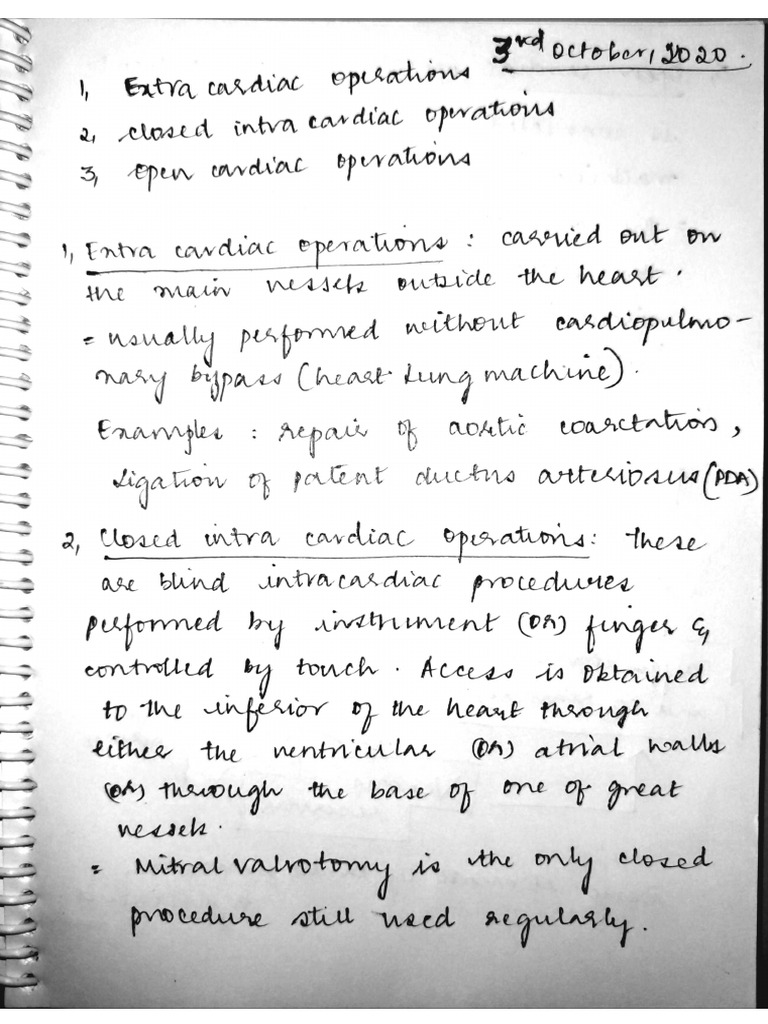 3rd October, 2020.
1, Extra cardiac operations
2, closed intra cardiac operations
3, open cardiac operations
1, Extra cardiac operations : carried out on
the main vessels outside the heart.
= usually performed without cardiopulmo-
nary bypass (heart lung machine).
Examples : repair of aortic coarctation,
Ligation of patent ductus arteriosus (PDA)
2, Closed intra cardiac operations: These
are blind intracardiac procedures
performed by instrument (OR) finger &
controlled by touch. Access is obtained
to the inferior of the heart through
either the ventricular (OR) atrial walls
(OR) through the base of one of great
vessels.
= Mitral valvotomy is the only closed
procedure still used regularly.